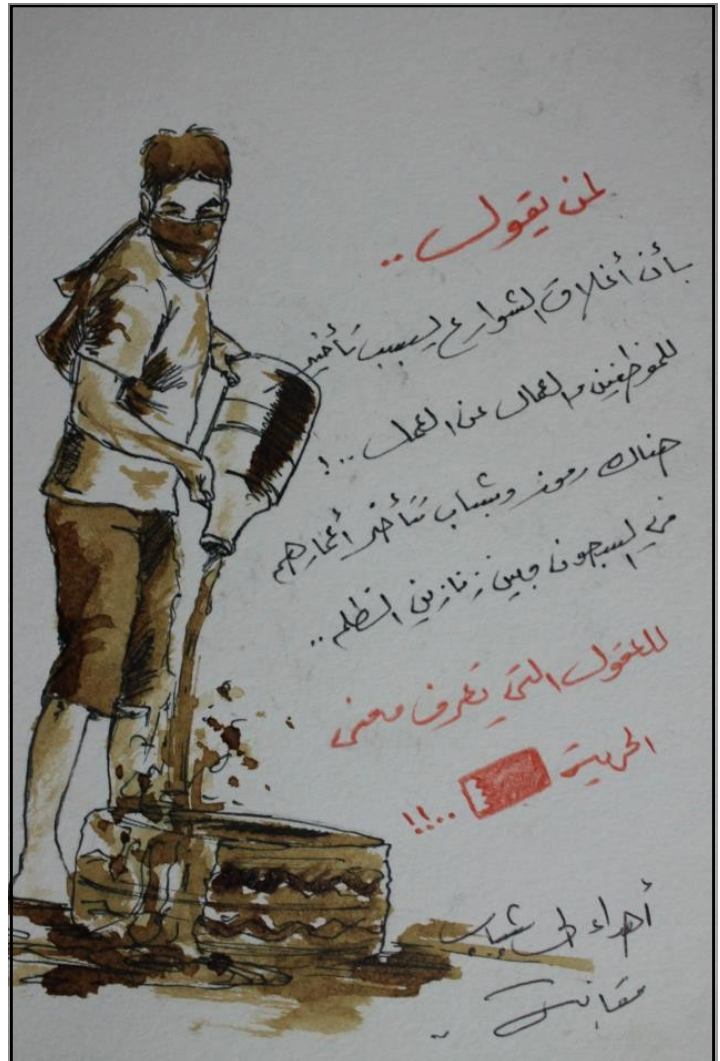 لمن يقول ..
بأن أغلاق الشوارع يسبب تأخير
للموظفين والعمال عن العمل ..!
هناك رموز وشباب تتأخر أعمارهم
في السجون وبين زنازين الظلم ..
للعقول التي تعرف معنى
الحرية ..!!
أهداء الى شباب